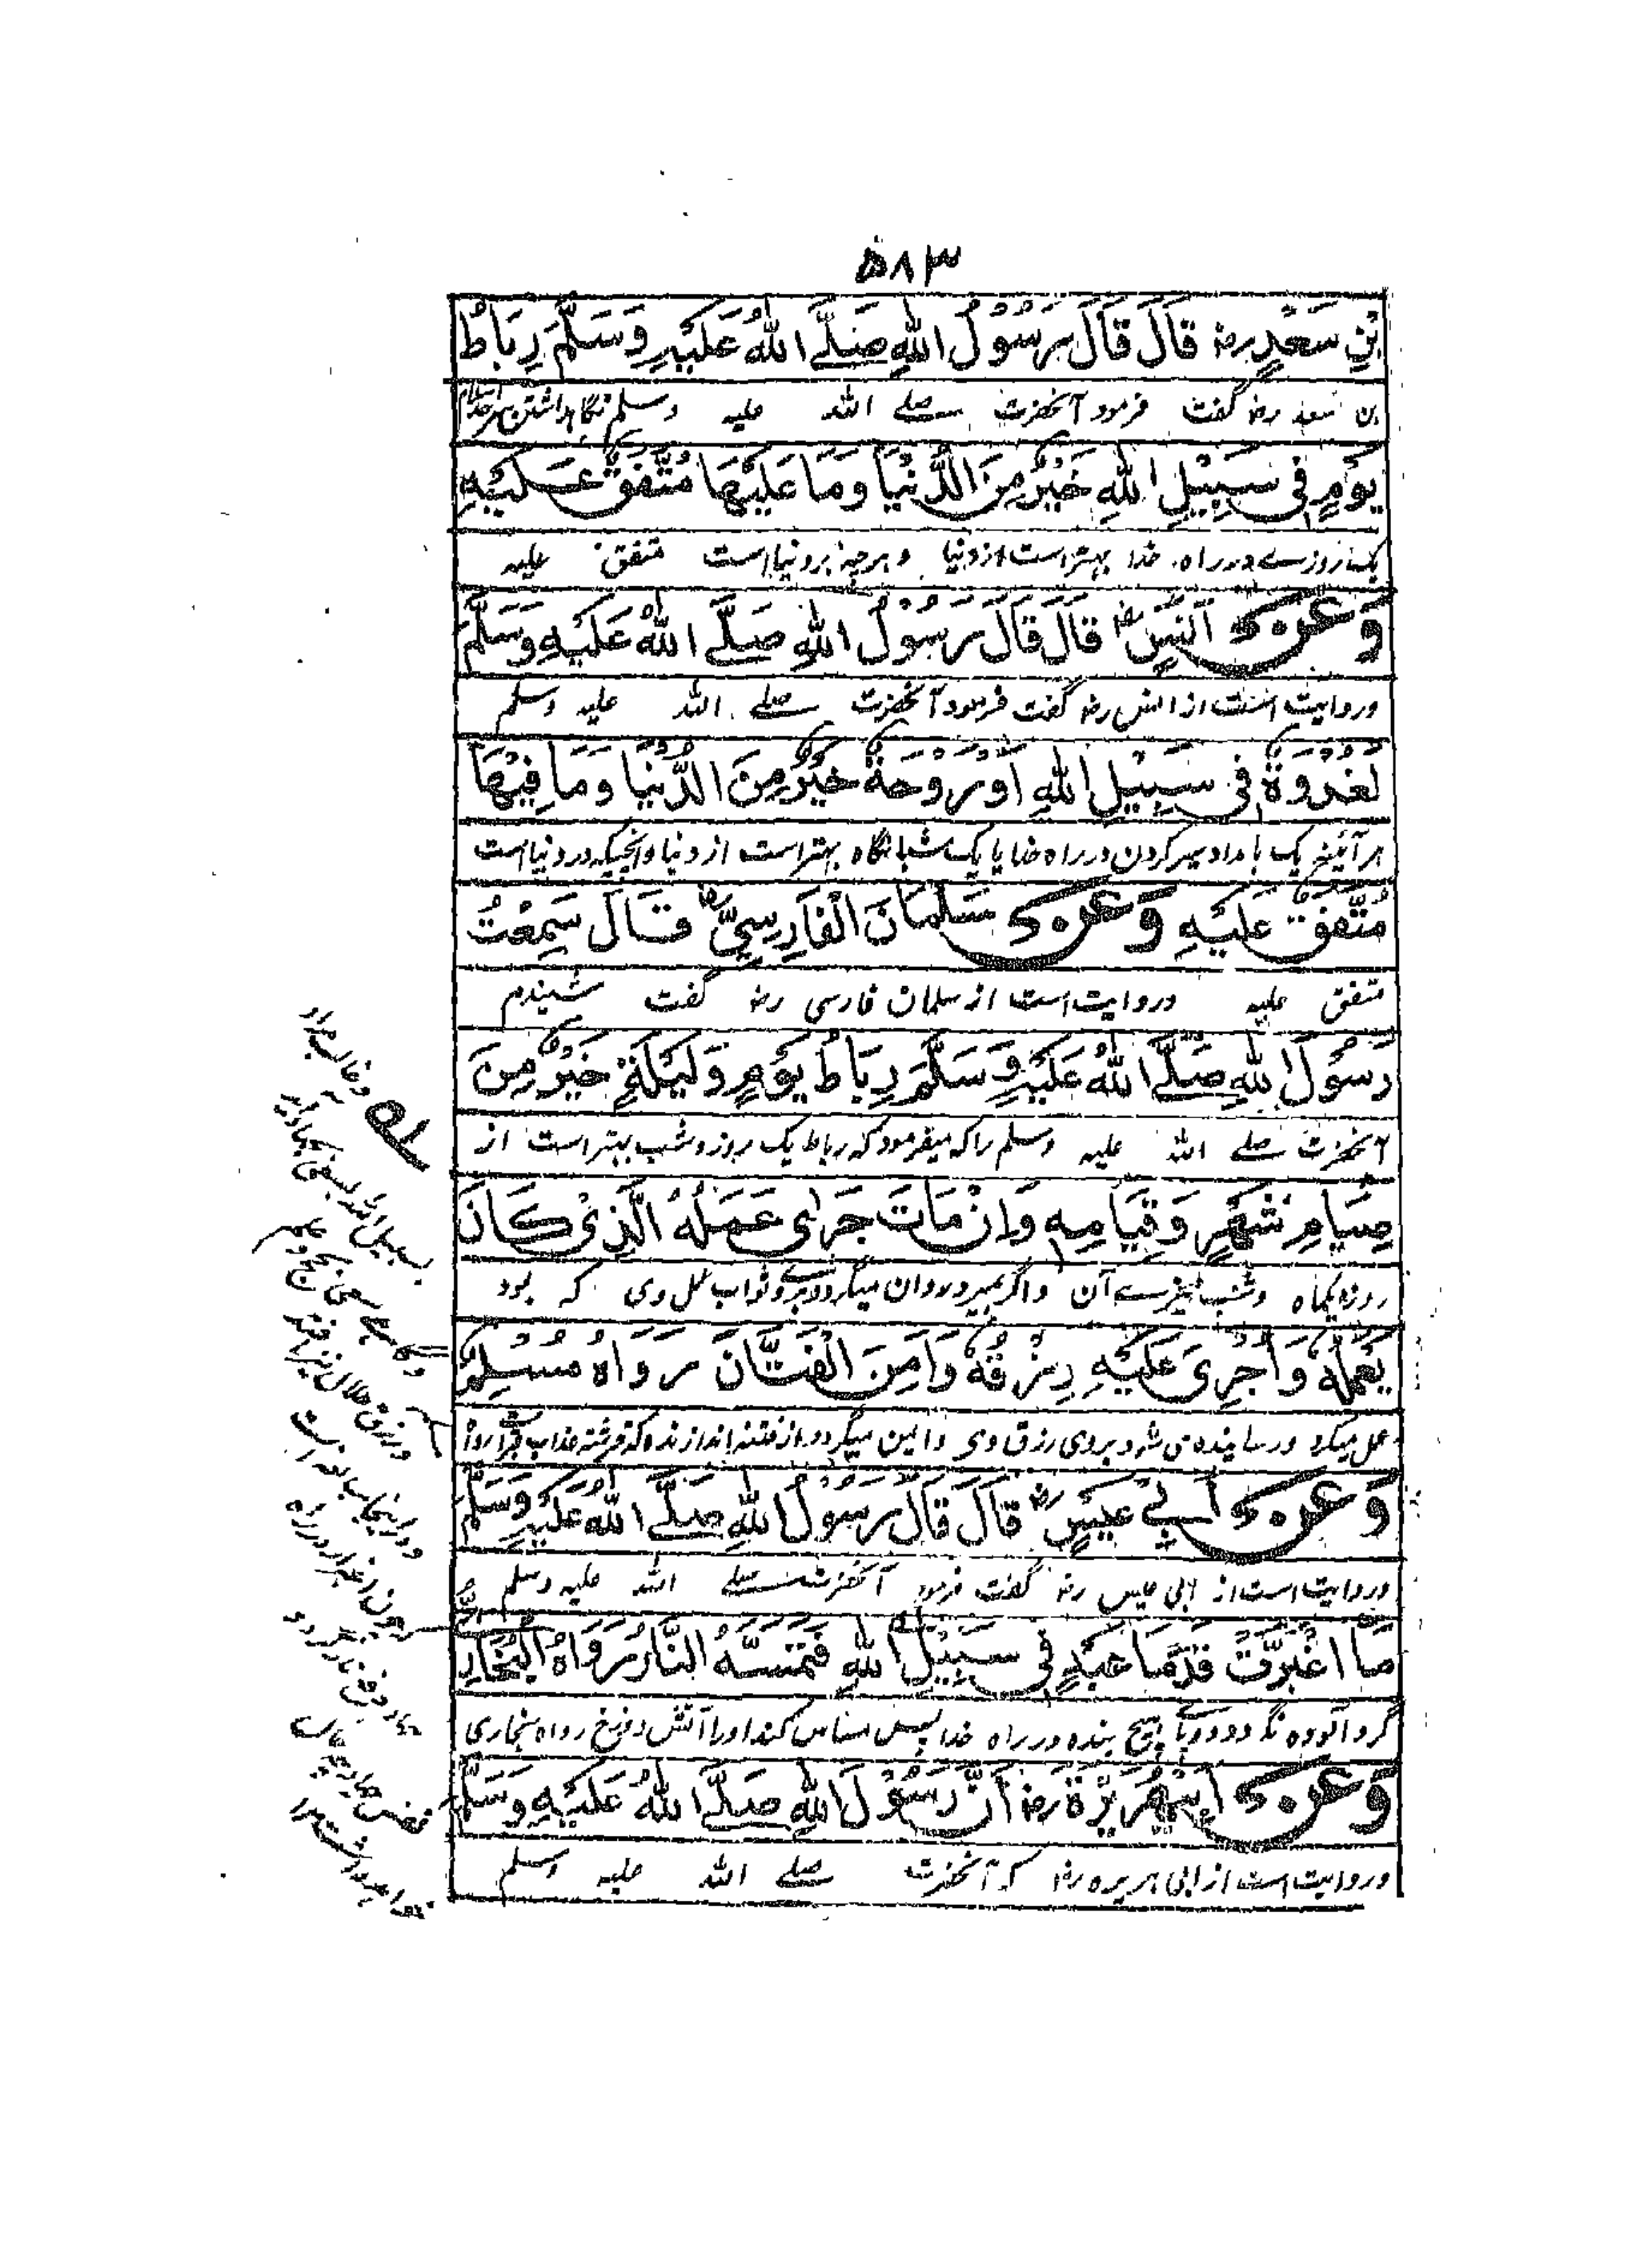 ۵۸۳
بْنِ سَعْدٍ رض قَالَ قَالَ رَسُوْلُ اللهِ صَلَّے اللهُ عَلَيْهِ وَسَلَّمَ رِبَاطُ
بن سعد رض گفت فرمود آنحضرت صلے اللہ علیہ وسلم نگاہداشتن سرحد اسلام
يَوْمٍ فِي سَبِيْلِ اللهِ خَيْرٌ مِنَ الدُّنْيَا وَمَا عَلَيْهَا مُتَّفَقٌ عَلَيْهِ
یک روز در راہ خدا بہتر است از دنیا و ہرچہ بر دنیا است متفق علیہ
وَعَنْ اَنَسٍ رض قَالَ قَالَ رَسُوْلُ اللهِ صَلَّے اللهُ عَلَيْهِ وَسَلَّمَ
و روایت است از انس رض گفت فرمود آنحضرت صلے اللہ علیہ وسلم
لَغُدْوَةٌ فِي سَبِيْلِ اللهِ اَوْ رَوْحَةٌ خَيْرٌ مِنَ الدُّنْيَا وَمَا فِيْهَا
ہر آئینہ یک بامداد سیر کردن در راہ خدا یا یک شبانگاہ بہتر است از دنیا و آنچیکہ در دنیا است
مُتَّفَقٌ عَلَيْهِ وَعَنْ سَلْمَانَ الْفَارِسِيِّ رض قَالَ سَمِعْتُ
متفق علیہ و روایت است از سلمان فارسی رض گفت شنیدم
رَسُوْلَ اللهِ صَلَّے اللهُ عَلَيْهِ وَسَلَّمَ رِبَاطُ يَوْمٍ وَلَيْلَةٍ خَيْرٌ مِنَ
آنحضرت صلے اللہ علیہ وسلم را کہ میفرمود کہ رباط یک روز و شب بہتر است از
صِيَامِ شَهْرٍ وَقِيَامِهِ وَاِنْ مَاتَ جَرٰى عَمَلُهُ الَّذِيْ كَانَ
روزہ یکماہ و شب خیزے آن و اگر بمیرد روان میگردد ثواب عمل وی کہ بود
يَعْمَلُهُ وَاُجْرِيَ عَلَيْهِ رِزْقُهُ وَاَمِنَ الْفَتَّانَ رَوَاهُ مُسْلِمٌ
عمل میکرد و رسانیدہ می شود بروی رزق وی و ایمن میگردد از فتنہ اندازندہ کہ فرشتہ عذاب قبر
وَعَنْ اَبِيْ عَبْسٍ رض قَالَ قَالَ رَسُوْلُ اللهِ صَلَّے اللهُ عَلَيْهِ وَسَلَّمَ
و روایت است از ابی عبس رض گفت فرمود آنحضرت صلے اللہ علیہ وسلم
مَا اغْبَرَّتْ قَدَمَا عَبْدٍ فِي سَبِيْلِ اللهِ فَتَمَسَّهُ النَّارُ رَوَاهُ الْبُخَارِيُّ
گرد آلودہ نگردد دو پای ہیچ بندہ در راہ خدا پس مساس کند او را آتش دوزخ رواہ بخاری
وَعَنْ اَبِيْ هُرَيْرَةَ رض اَنَّ رَسُوْلَ اللهِ صَلَّے اللهُ عَلَيْهِ وَسَلَّمَ
و روایت است از ابی ہریرہ رض کہ آنحضرت صلے اللہ علیہ وسلم